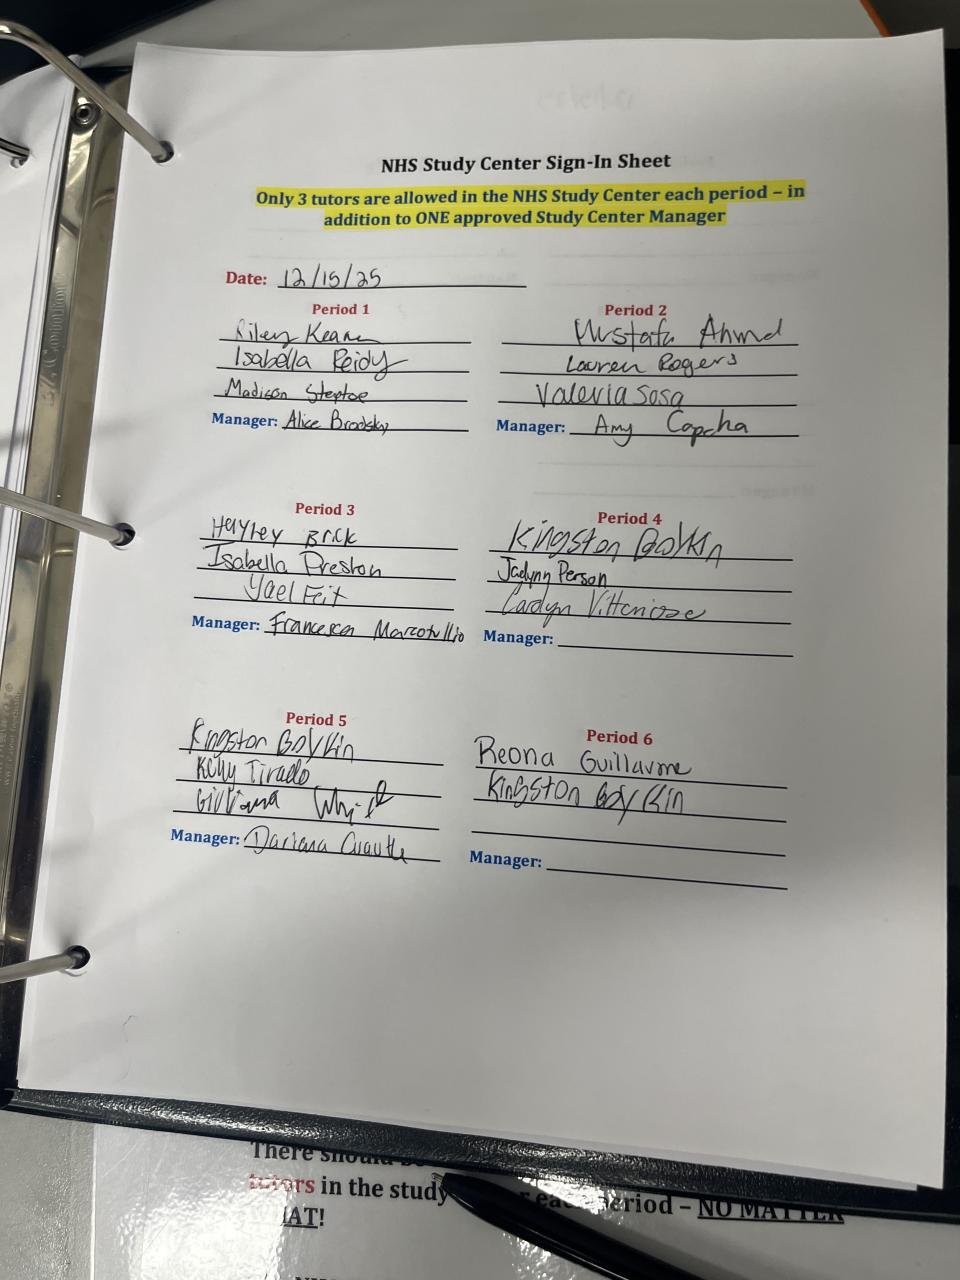 NHS Study Center Sign-In Sheet
Only 3 tutors are allowed in the NHS Study Center each period – in
addition to ONE approved Study Center Manager
Date: 12/15/25
Period 1
Riley Keane
Isabella Reidy
Madison Steptoe
Manager: Alice Brodsky
Period 2
Mustafa Ahmd
Lauren Rogers
Valeria Sosa
Manager: Amy Capcha
Period 3
Hayley Brick
Isabella Preston
Yael Feit
Manager: Francesca Marcotullio
Period 4
Kingston Boykin
Jaelynn Person
Carolyn
Manager:
Period 5
Kingston Boykin
Kelly Tirado
Giuliana
Manager: Dariana Cuautle
Period 6
Reona Guillavme
Kingston Boykin
Manager:
There should
tutors in the study each period – NO MATTER